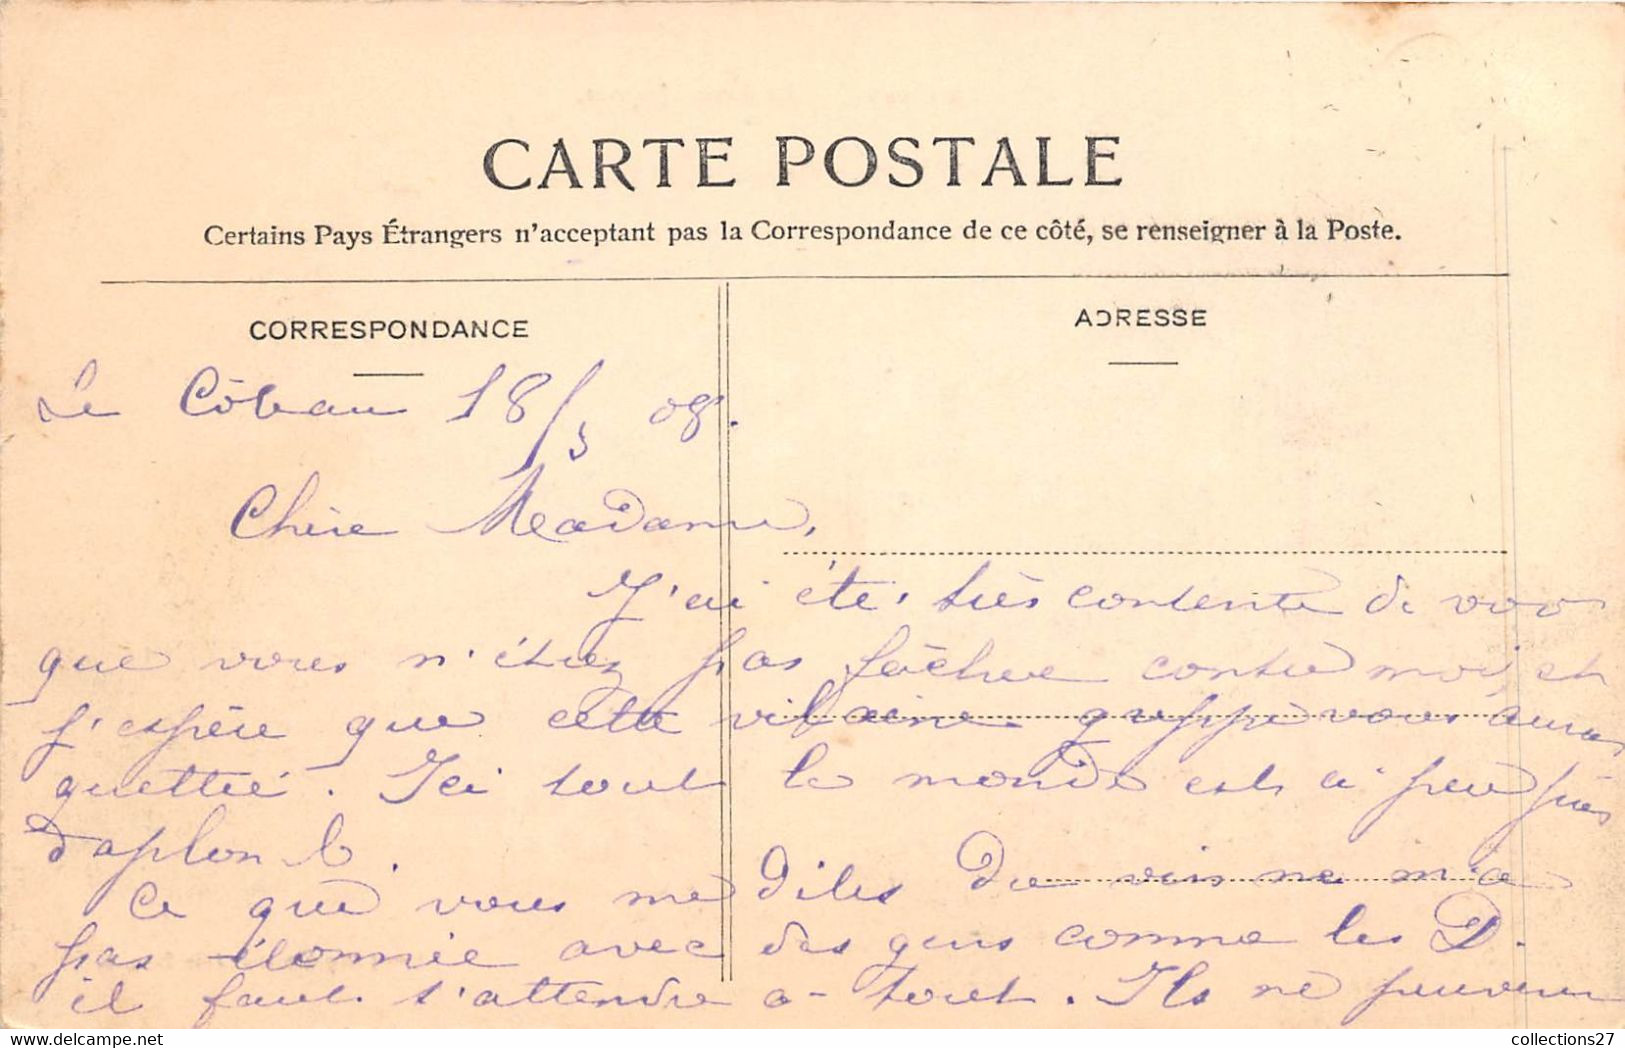 CARTE POSTALE
Certains Pays Étrangers n'acceptant pas la Correspondance de ce côté, se renseigner à la Poste.
CORRESPONDANCE
ADRESSE
Le 18/3 08.
Chère Madame,
J'ai été très contente de voir
que vous n'étiez pas fâchée contre moi, et
j'espère que cette vilaine grippe vous aura
quittée. Ici tout le monde est à peu près
d'aplomb.
Ce que vous me dites du vin ne m'a
pas étonnée avec des gens comme les D.
il faut s'attendre a tout. Ils ne peuvent
collections27